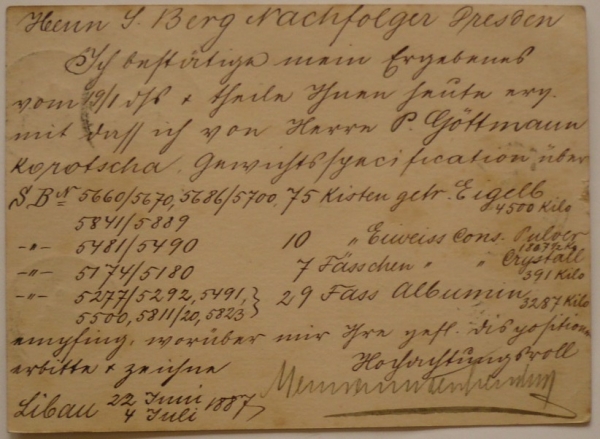 Herrn S. Berg Nachfolger Dresden
Ich bestätige mein Ergebenes
vom 19/1 ds & theile Ihnen heute erg.
mit dass ich von Herrn P. Göttmann
Korotscha Gewichtsspecification über
S. B. № 5660/5670, 5686/5700, 75 Kisten getr. Eigelb
4500 Kilo
5841/5889
-"- 5481/5490 10 " Eiweiss Cons. Pulver
-"- 5174/5180 7 Fässchen " " Crystall
391 Kilo
-"- 5277/5292, 5491, 29 Fass Albumin 3287 Kilo
5500, 5811/20, 5823
empfing, worüber mir Ihre gefl. disposition
erbitte & zeichne Hochachtungsvoll
Libau 22 Juni
4 Juli 1887